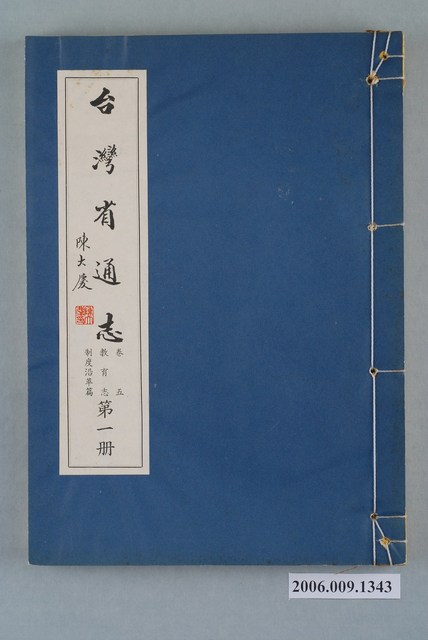 台灣省通志
陳大慶
卷五
教育志
制度沿革篇
第一册
2006.009.1343